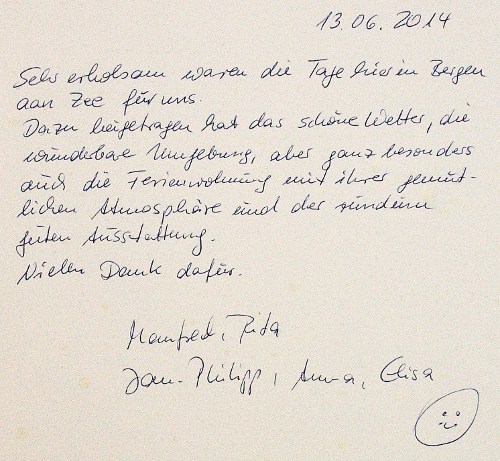 13.06.2014
Sehr erholsam waren die Tage hier in Bergen
aan Zee für uns.
Dazu beigetragen hat das schöne Wetter, die
wunderbare Umgebung, aber ganz besonders
auch die Ferienwohnung mit ihrer gemüt-
lichen Atmosphäre und der rundum
guten Ausstattung.
Vielen Dank dafür.
Manfred, Rita
Jan-Philipp, Anna, Elisa